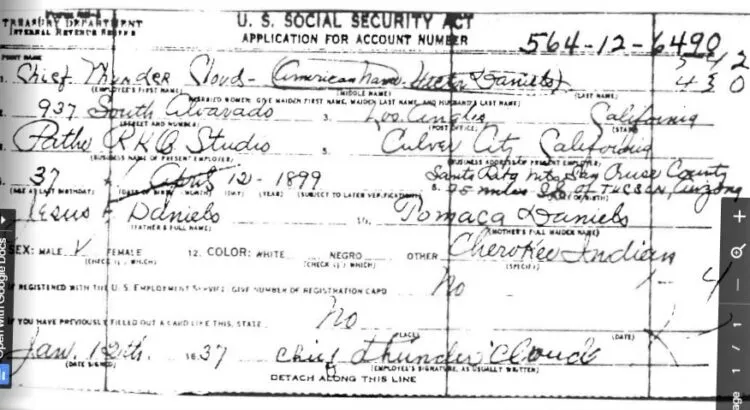 TREASURY DEPARTMENT
INTERNAL REVENUE SERVICE
U. S. SOCIAL SECURITY ACT
APPLICATION FOR ACCOUNT NUMBER
564-12-6490
PRINT NAME
1. Chief Thunder Cloud - (American name Victor Daniels)
(EMPLOYEE'S FIRST NAME) (MIDDLE NAME) (LAST NAME)
(MARRIED WOMEN: GIVE MAIDEN FIRST NAME, MAIDEN LAST NAME, AND HUSBAND'S LAST NAME)
2. 937 South Alvarado 3. Los Angles California
(STREET AND NUMBER) (POST OFFICE) (STATE)
Pathe RKO Studio 5. Culver City California
(BUSINESS NAME OF PRESENT EMPLOYER) (BUSINESS ADDRESS OF PRESENT EMPLOYER)
37 April 12 - 1899 Santa Rita Mts
(AGE AT LAST BIRTHDAY) (DATE OF BIRTH: MONTH) (DAY) (YEAR) (SUBJECT TO LATER VERIFICATION)
8. 75 miles S.E. of TUCSON, Arizona
Jesus F Daniels Tomaca Daniels
(FATHER'S FULL NAME) (MOTHER'S FULL MAIDEN NAME)
SEX: MALE V FEMALE 12. COLOR: WHITE NEGRO OTHER Cherokee Indian
(CHECK (√) WHICH) (CHECK (√) WHICH) (SPECIFY)
IF REGISTERED WITH THE U. S. EMPLOYMENT SERVICE, GIVE NUMBER OF REGISTRATION CARD No
IF YOU HAVE PREVIOUSLY FILLED OUT A CARD LIKE THIS, STATE No
(PLACE) (DATE)
Jan. 12th. 1937 Chief Thunder Cloud
(DATE SIGNED) (EMPLOYEE'S SIGNATURE, AS USUALLY WRITTEN)
DETACH ALONG THIS LINE
Open with Google Docs
Page 1 / 1